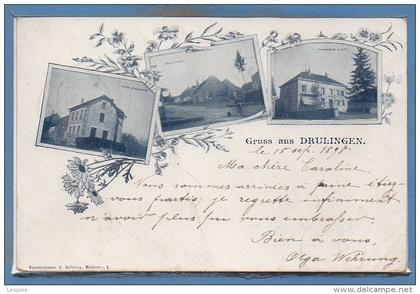 Gruss aus DRULINGEN.
le 15 sep. 1898
Ma chère Caroline,
Nous sommes arrivées à peine étiez-
vous partis; je regrette infiniment
n'avoir plus pu vous embrasser.
Bien à vous,
Olga Wehrung
www.delcampe.net